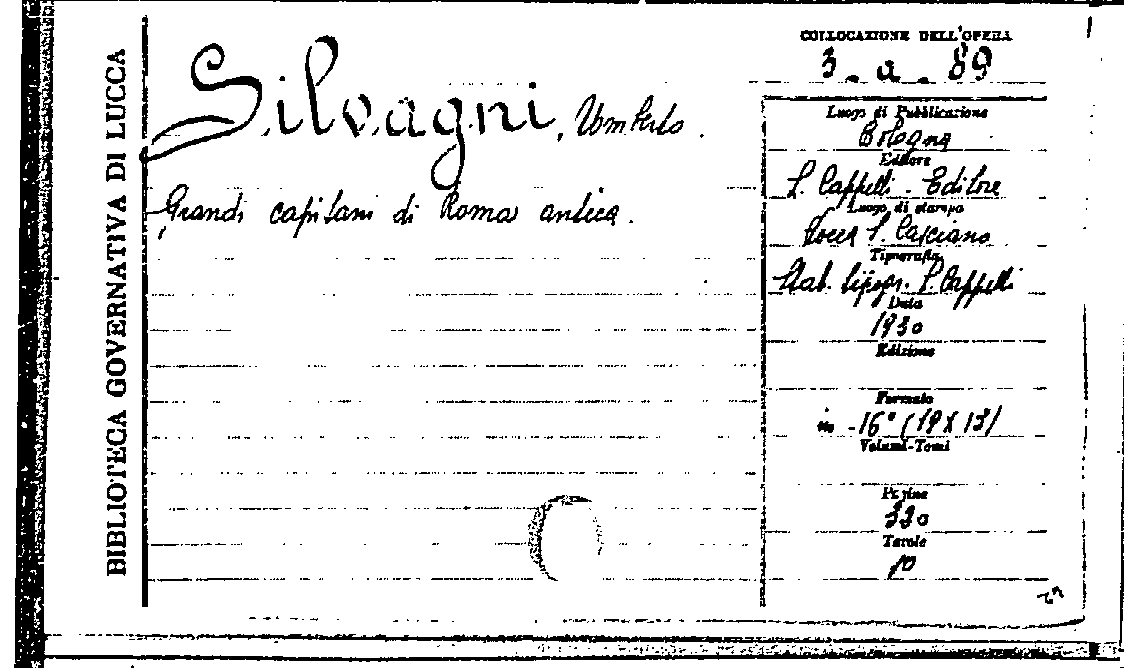 BIBLIOTECA GOVERNATIVA DI LUCCA
Silvagni, Umberto.
Grandi capitani di Roma antica.
COLLOCAZIONE DELL'OPERA
3. a. 89
Luogo di Pubblicazione
Bologna
Editore
L. Cappelli - Editore
Luogo di stampa
Rocca S. Casciano
Tipografia
Stab. tipogr. L. Cappelli
Data
1930
Edizione
Formato
in -16° (19 X 13)
Volumi-Tomi
Pagine
330
Tavole
10